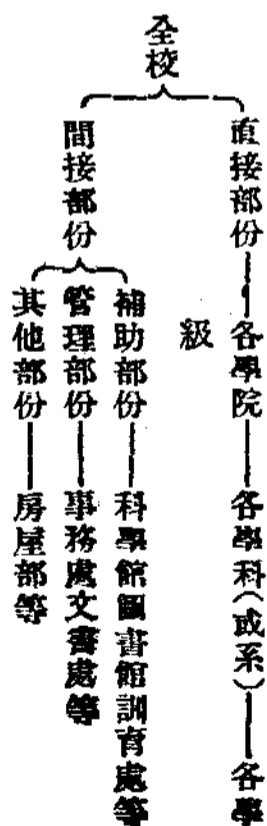 全校
直接部份——各學院——各學科(或系)——各學
級
間接部份
補助部份——科學館圖書館訓育處等
管理部份——事務處文書處等
其他部份——房屋部等